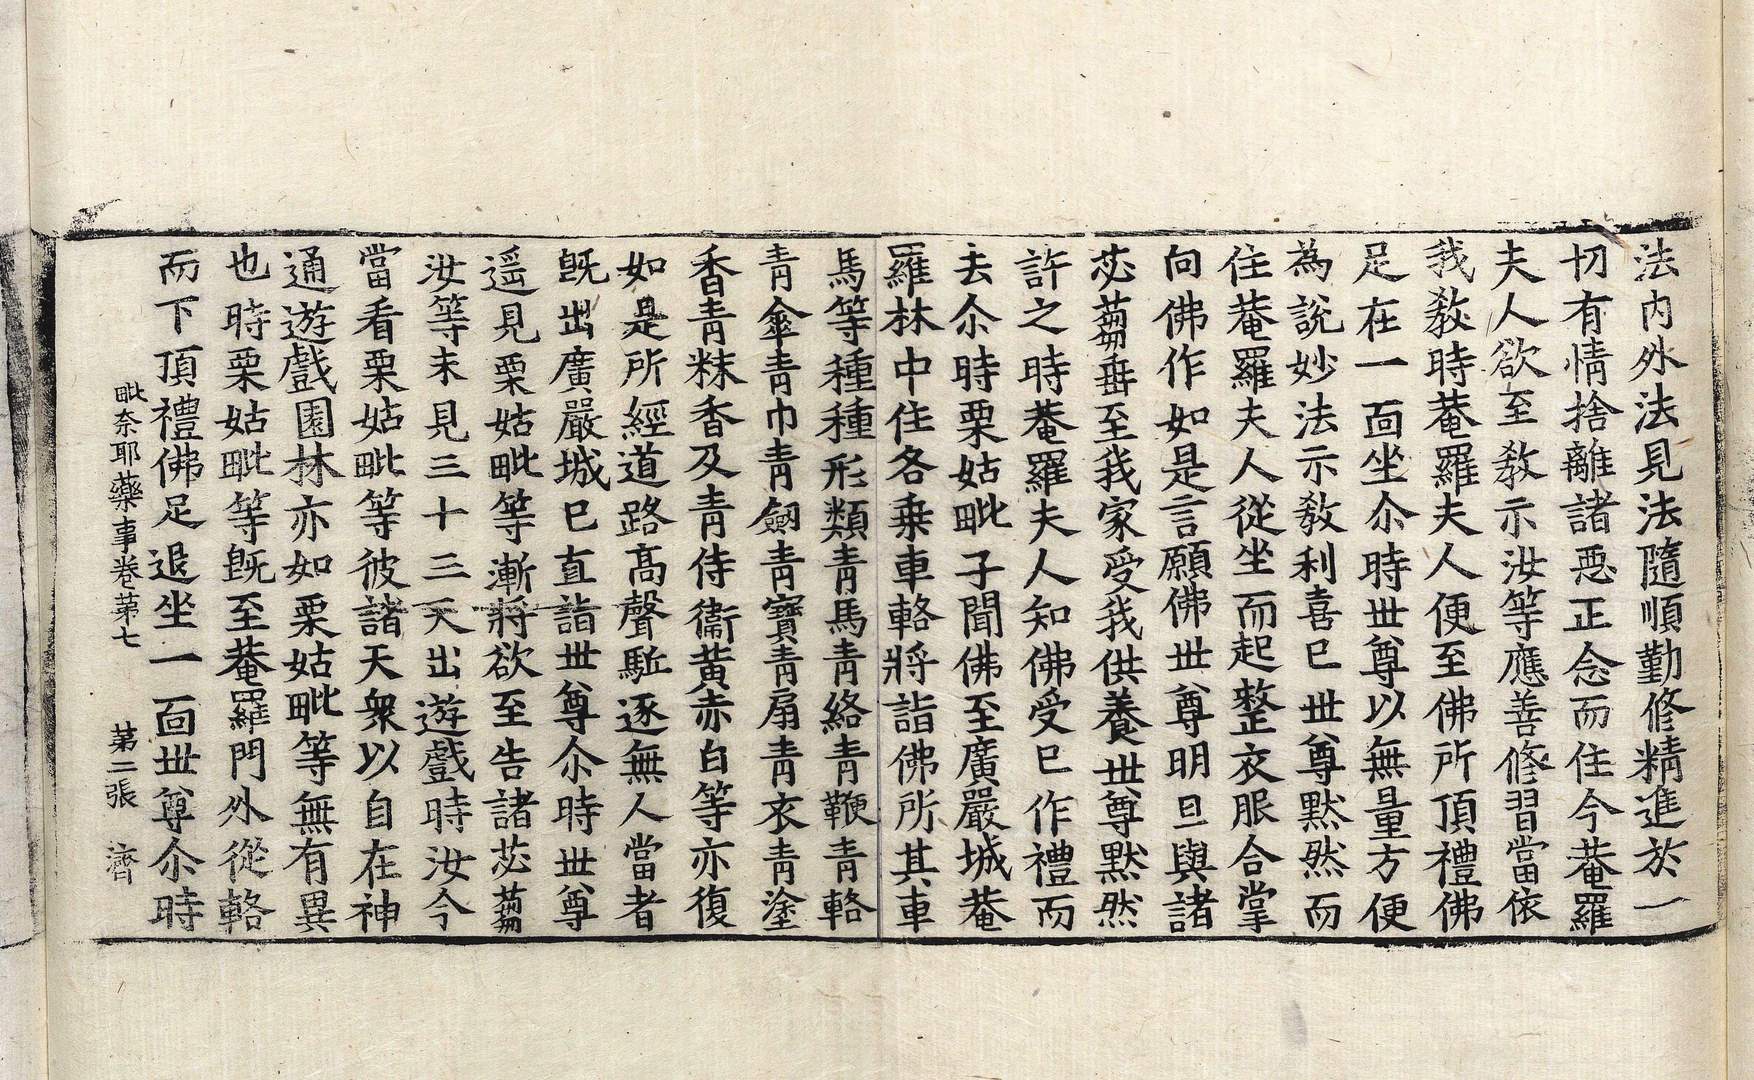 法內外法見法隨順勤修精進於一
切有情捨離諸惡正念而住今菴羅
夫人欲至敎示汝等應善修習當依
我敎時菴羅夫人便至佛所頂禮佛
足在一面坐尒時世尊以無量方便
為說妙法示敎利喜已世尊默然而
住菴羅夫人從坐而起整衣服合掌
向佛作如是言願佛世尊明旦與諸
苾蒭垂至我家受我供養世尊默然
許之時菴羅夫人知佛受已作禮而
去尒時栗姑毗子聞佛至廣嚴城菴
羅林中住各乗車輅將詣佛所其車
馬等種種形類青馬青絡青鞭青輅
青傘青巾青劒青寶青扇青衣青塗
香青粖香及青侍衞黃赤白等亦復
如是所經道路髙聲駈逐無人當者
旣出廣嚴城已直詣世尊尒時世尊
遥見栗姑毗等漸將欲至告諸苾蒭
汝等未見三十三天出遊戲時汝今
當看栗姑毗等彼諸天衆以自在神
通遊戲園林亦如栗姑毗等無有異
也時栗姑毗等旣至菴羅門外從輅
而下頂禮佛足退坐一面世尊尒時
毗奈耶藥事卷苐七 苐二張 濟